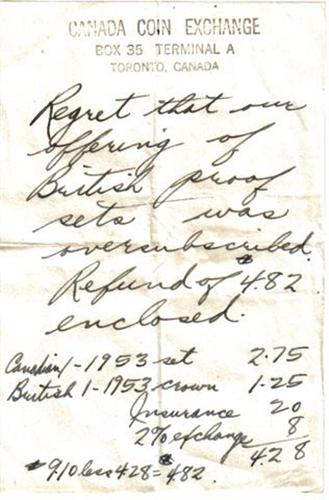 CANADA COIN EXCHANGE
BOX 35 TERMINAL A
TORONTO, CANADA
Regret that our
offering of
British proof
sets was
oversubscribed.
Refund of $4.82
enclosed.
Canadian 1-1953 set 2.75
British 1-1953 crown 1.25
Insurance 20
2% exchange 8
4.28
* 910 less 428 = $4.82.